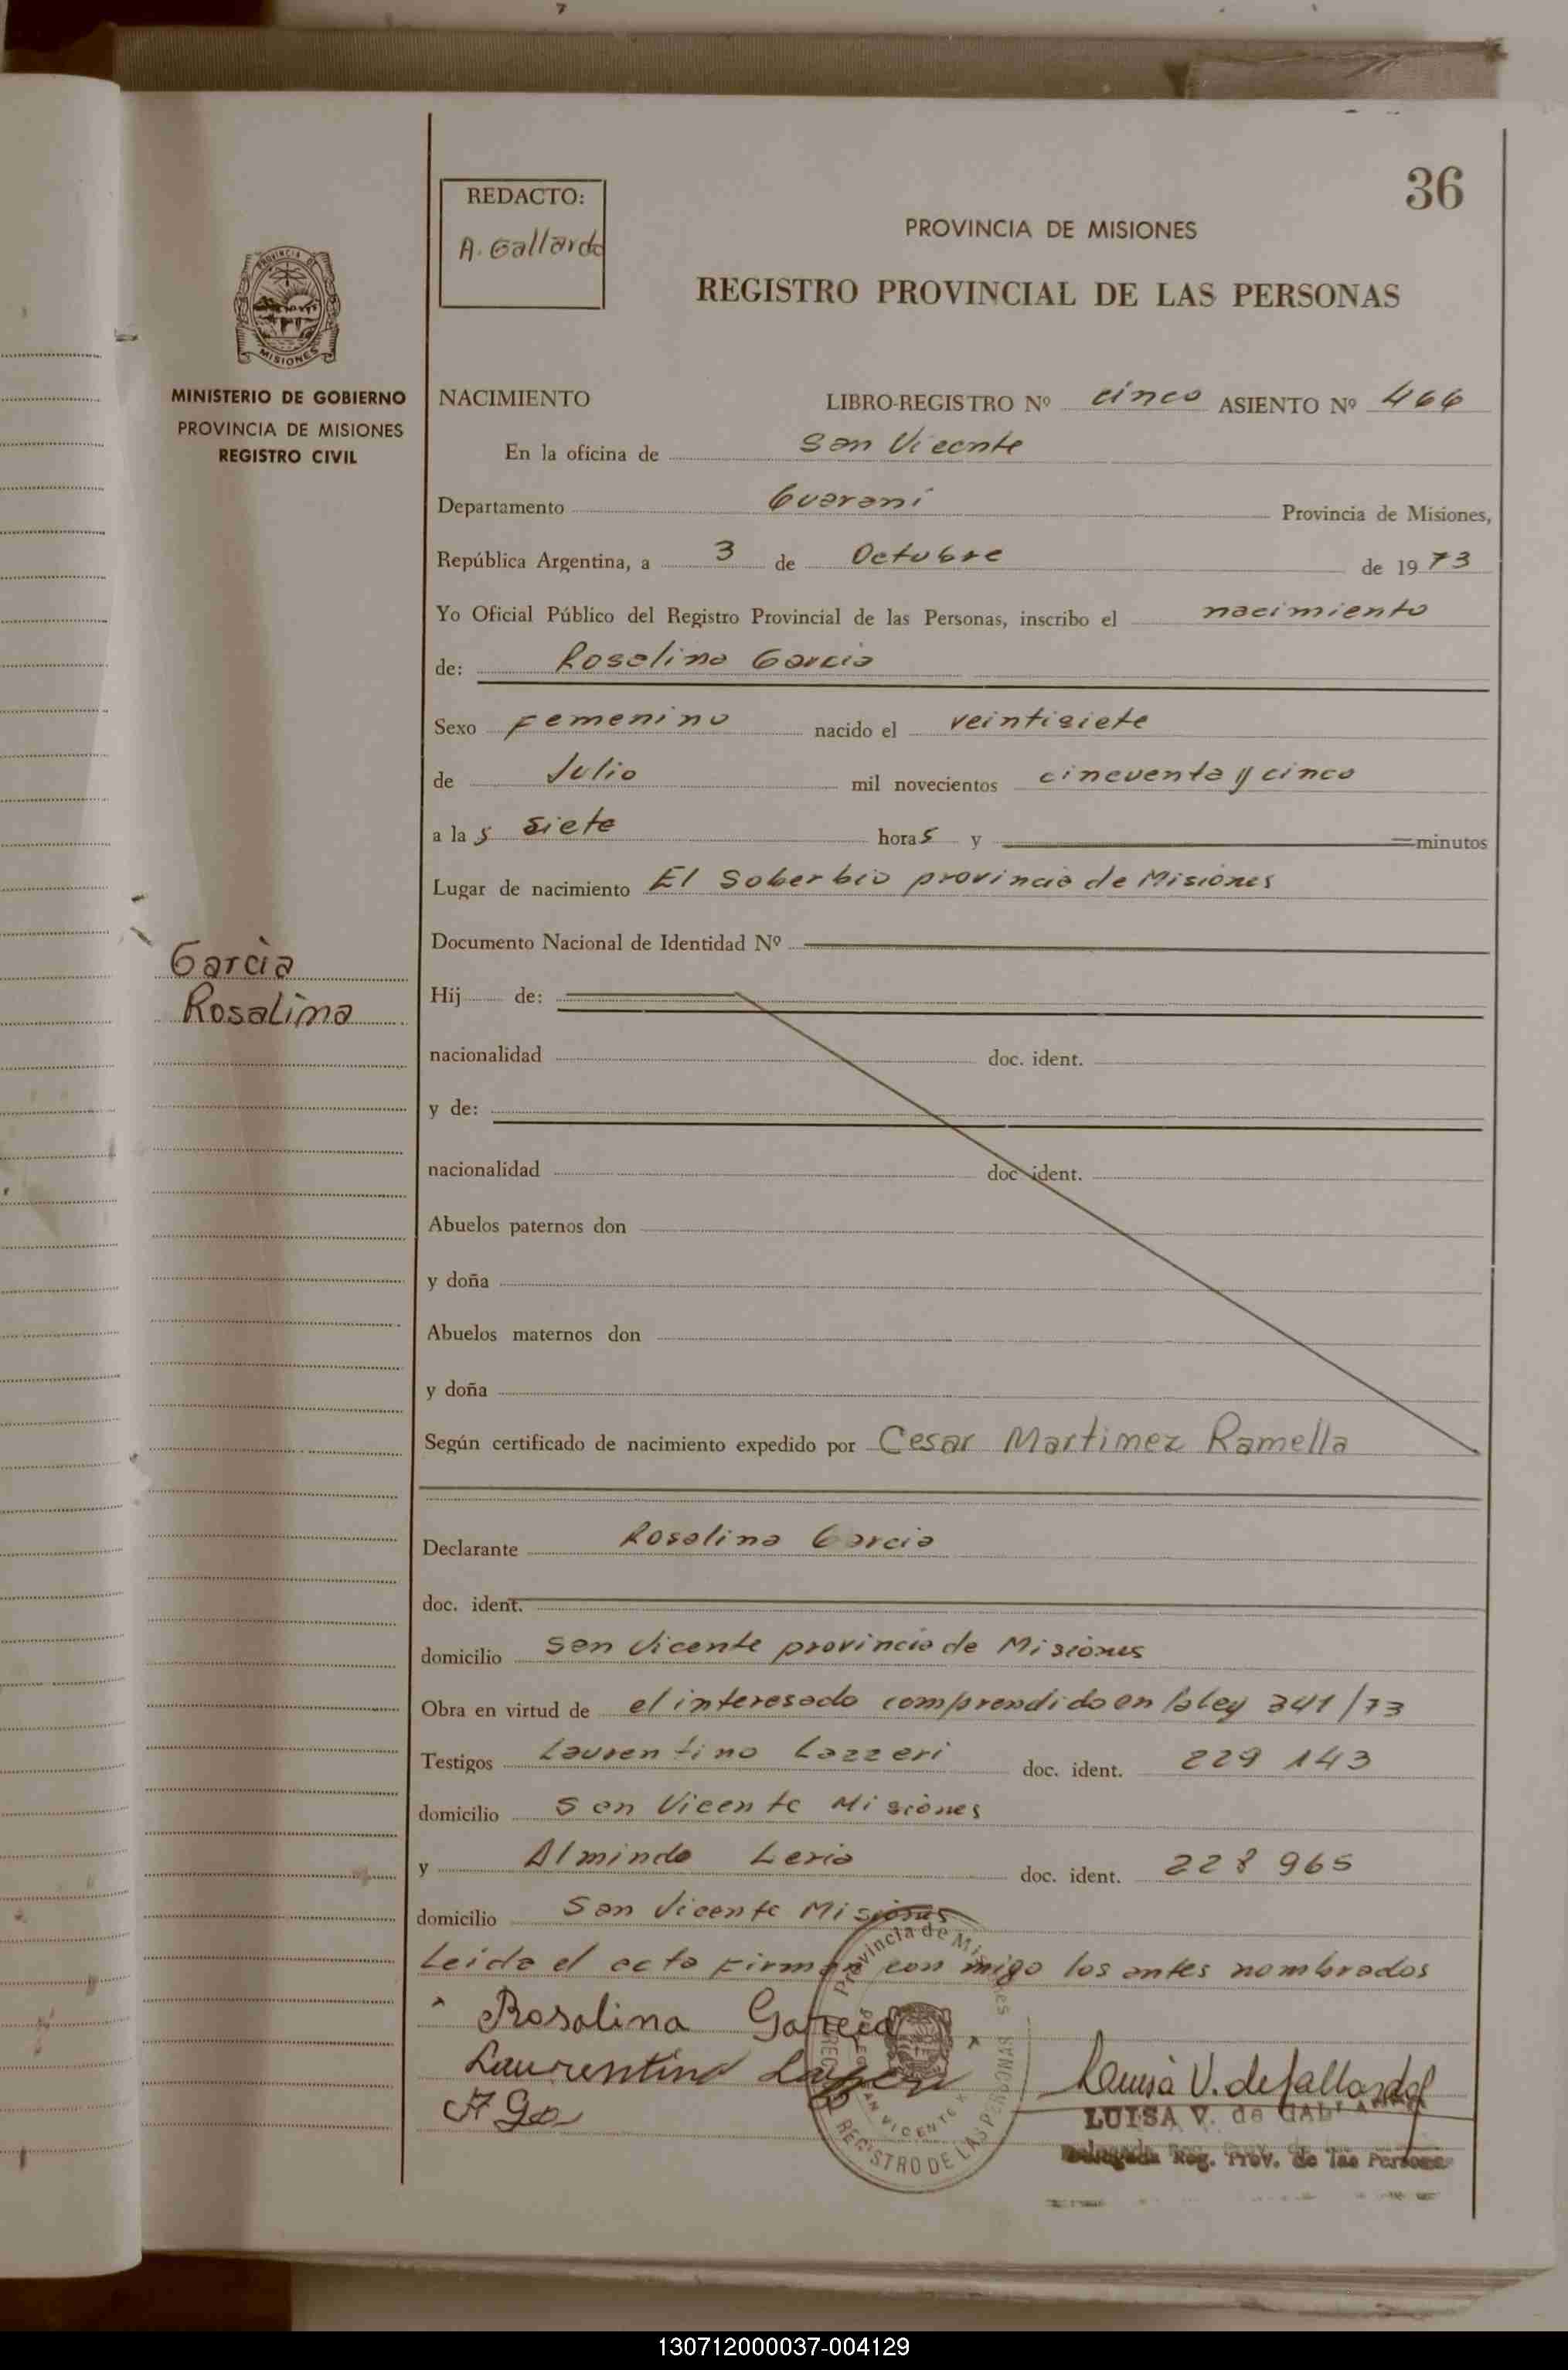 36
REDACTO:
A. Gallardo
PROVINCIA DE MISIONES
REGISTRO PROVINCIAL DE LAS PERSONAS
PROVINCIA DE
MISIONES
MINISTERIO DE GOBIERNO
PROVINCIA DE MISIONES
REGISTRO CIVIL
NACIMIENTO LIBRO-REGISTRO Nº cinco ASIENTO Nº 466
En la oficina de San Vicente
Departamento Guarani Provincia de Misiones,
República Argentina, a 3 de Octubre de 1973
Yo Oficial Público del Registro Provincial de las Personas, inscribo el nacimiento
de: Rosalina Garcia
Sexo Femenino nacido el veintisiete
de Julio mil novecientos cincuenta y cinco
a las siete horas y minutos
Lugar de nacimiento El Soberbio provincia de Misiones
Documento Nacional de Identidad Nº
Garcia
Rosalina
Hij de:
nacionalidad doc. ident.
y de:
nacionalidad doc. ident.
Abuelos paternos don
y doña
Abuelos maternos don
y doña
Según certificado de nacimiento expedido por Cesar Martinez Ramella
Declarante Rosalina Garcia
doc. ident.
domicilio San Vicente provincia de Misiones
Obra en virtud de el interesado comprendido en la ley 341/73
Testigos Laurentino Lazzeri doc. ident. 229 143
domicilio San Vicente Misiones
y Almindo Leria doc. ident. 228 965
domicilio San Vicente Misiones
Leida el acta Firman con migo los antes nombrados
Rosalina Garcia
Laurentino Lazzeri
Luisa V. de Gallardo
LUISA V. de GALLARDO
Delegada Reg. Prov. de las Personas
Provincia de Misiones
SAN VICENTE
REGISTRO DE LAS PERSONAS
130712000037-004129